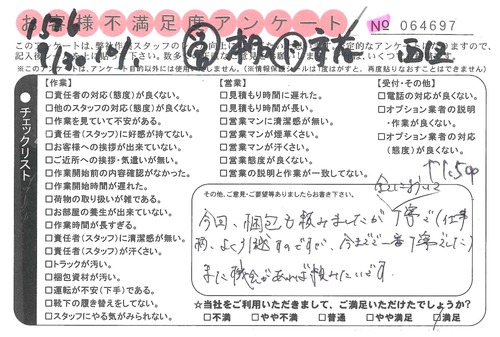 お客様不満足度アンケート
№ 064697
【作業】
□責任者の対応(態度)が良くない。
□他のスタッフの対応(態度)が良くない。
□作業を見ていて不安がある。
□責任者(スタッフ)に好感が持てない。
□お客様への挨拶が出来ていない。
□ご近所への挨拶・気遣いが無い。
□作業開始前の内容確認がなかった。
□作業開始時間が遅れた。
□荷物の取り扱いが雑である。
□お部屋の養生が出来ていない。
□作業時間が長すぎる。
□責任者(スタッフ)に清潔感が無い。
□責任者(スタッフ)が汗くさい。
□トラックが汚い。
□梱包資材が汚い。
□運転が不安(下手)である。
□靴下の履き替えをしてない。
□スタッフにやる気がみられない。
【営業】
□見積もり時間に遅れた。
□見積もり時間が長い。
□営業マンに清潔感が無い。
□営業マンが煙草くさい。
□営業マンが汗くさい。
□営業態度が良くない。
□営業の説明と作業が一致してない。
【受付・その他】
□電話の対応が良くない。
□オプション業者の説明
・作業が良くない。
□オプション業者の対応
(態度)が良くない。
チェックリスト
その他、ご意見・ご要望等ありましたらお書き下さい。
全てにおいて
今回、梱包も頼みましたが 丁寧で(仕事
柄、よく引越すのですが、今までで一番丁寧でした)
また機会があれば頼みたいです。
☆当社をご利用いただきまして、ご満足いただけたでしょうか?
□不満 □やや不満 □普通 □やや満足 □満足